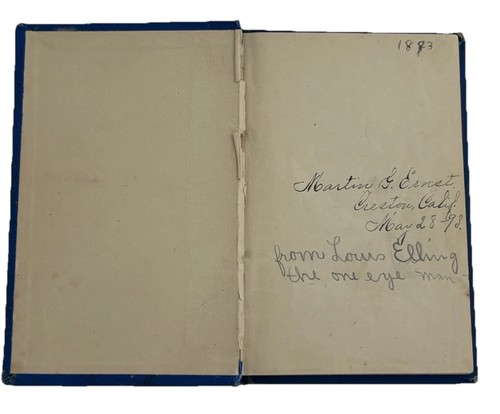 1893
Martin G. Ernst.
Creston, Calif.
May 28-93.
from Louis Elling
the one eye man